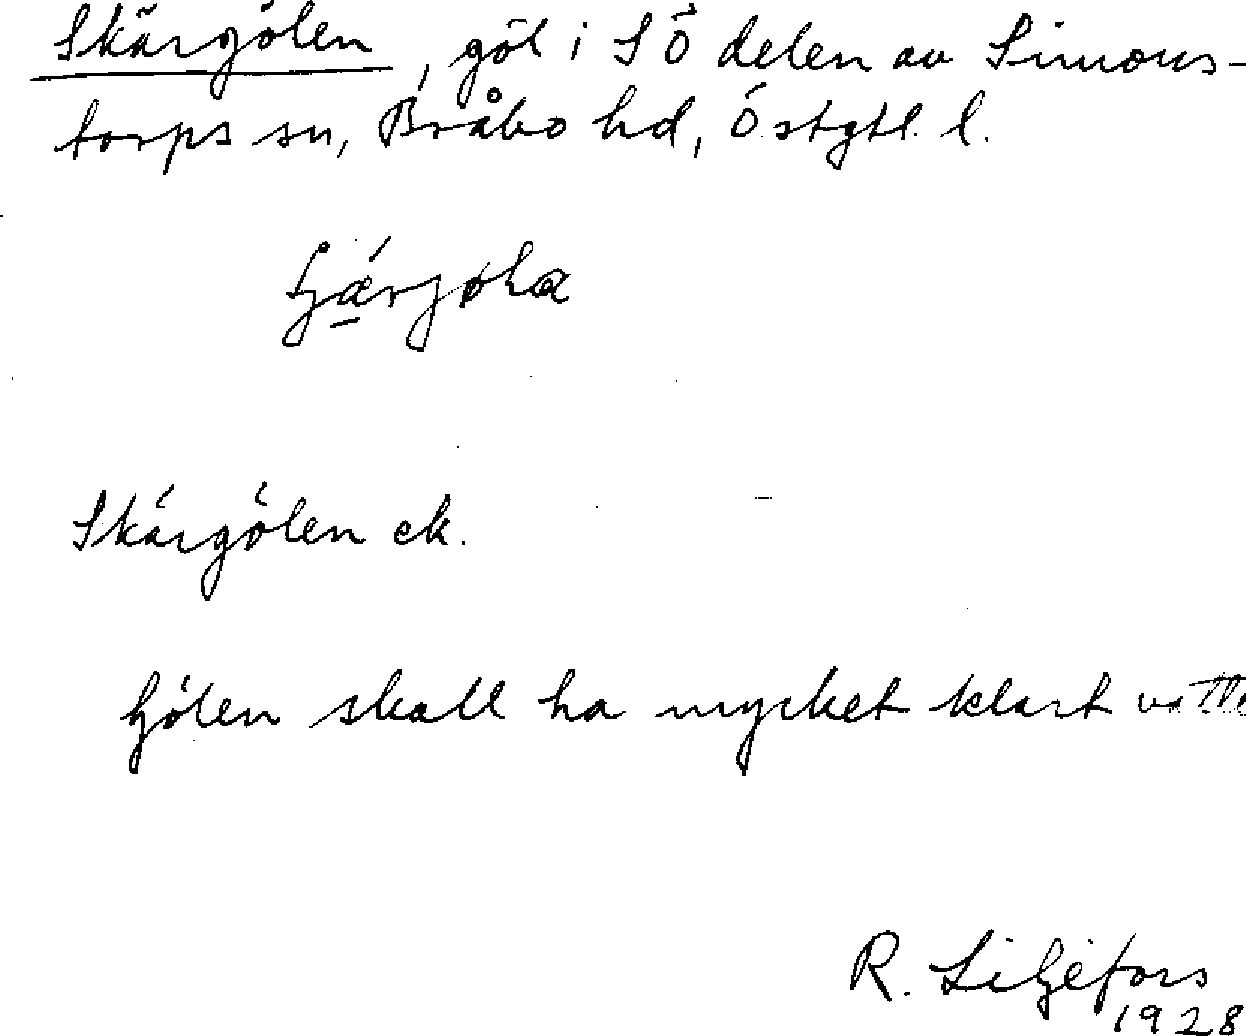 Skärgölen, göl i SÖ delen av Simons-
torps sn, Bråbo hd, Östgtl. l.
Skärgölen ek.
Gölen skall ha mycket klart vatte
R. Liljefors
1928